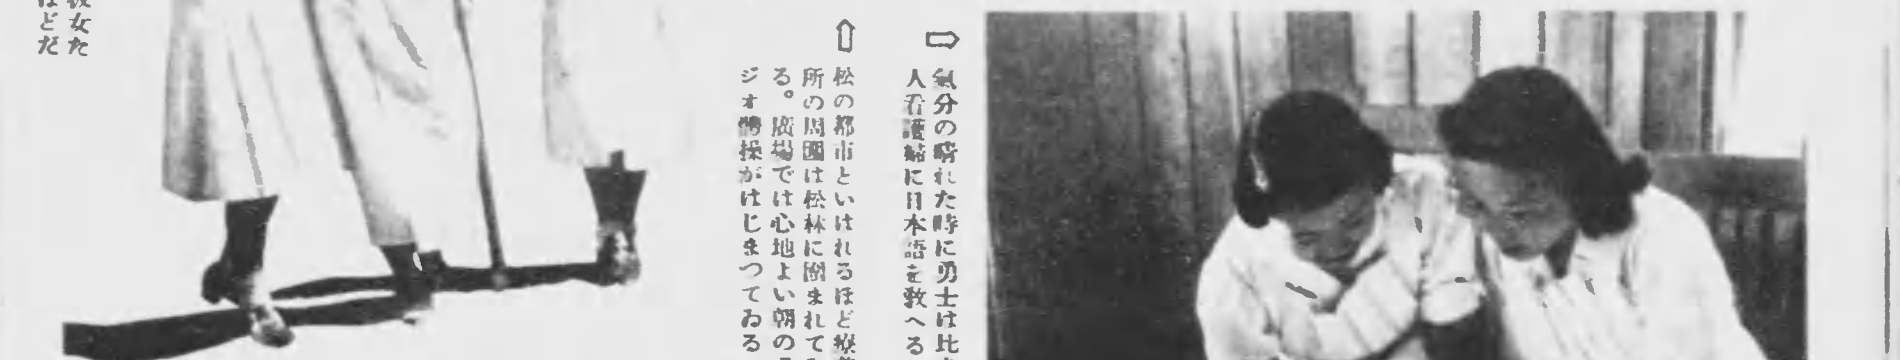 ⇨ 氣分の晴れた時に勇士は比
人看護婦に日本語を敎へる
⇧ 松の都市といはれるほど療
所の周圍は松林に圍まれて
る。廣場では心地よい朝の
ジオ體操がはじまつてゐる
女た
ほどだ